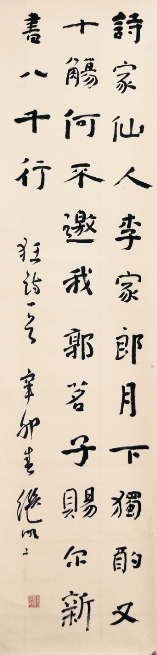 詩家仙人李家郎月下獨酌又
十觴何不邀我郭茗子賜尔新
書八千行
狂詩一首 辛卯春